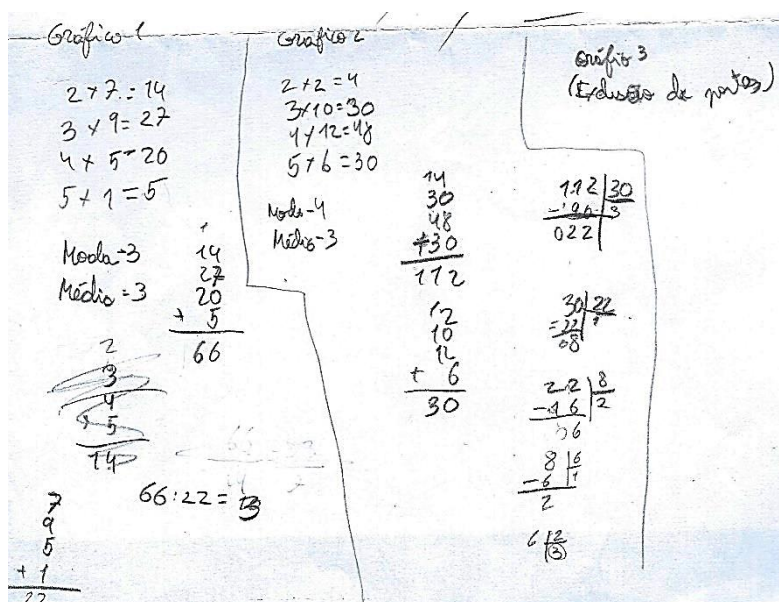 Gráfico 1
2 × 7 = 14
3 × 9 = 27
4 × 5 = 20
5 × 1 = 5
Moda - 3
Média = 3
14
27
20
+ 5
66
2
3
4
+ 5
14
66 : 22 = 3
7
9
5
+ 1
22
Gráfico 2
2 × 2 = 4
3 × 10 = 30
4 × 12 = 48
5 × 6 = 30
Moda - 4
Média - 3
14
30
48
+ 30
112
12
10
12
+ 6
30
Gráfico 3
(Exclusão de partes)
112 | 30
- 90 3
022
30 | 22
- 22 1
08
22 | 8
- 16 2
06
8 | 6
- 6 1
2
6 | 2
3